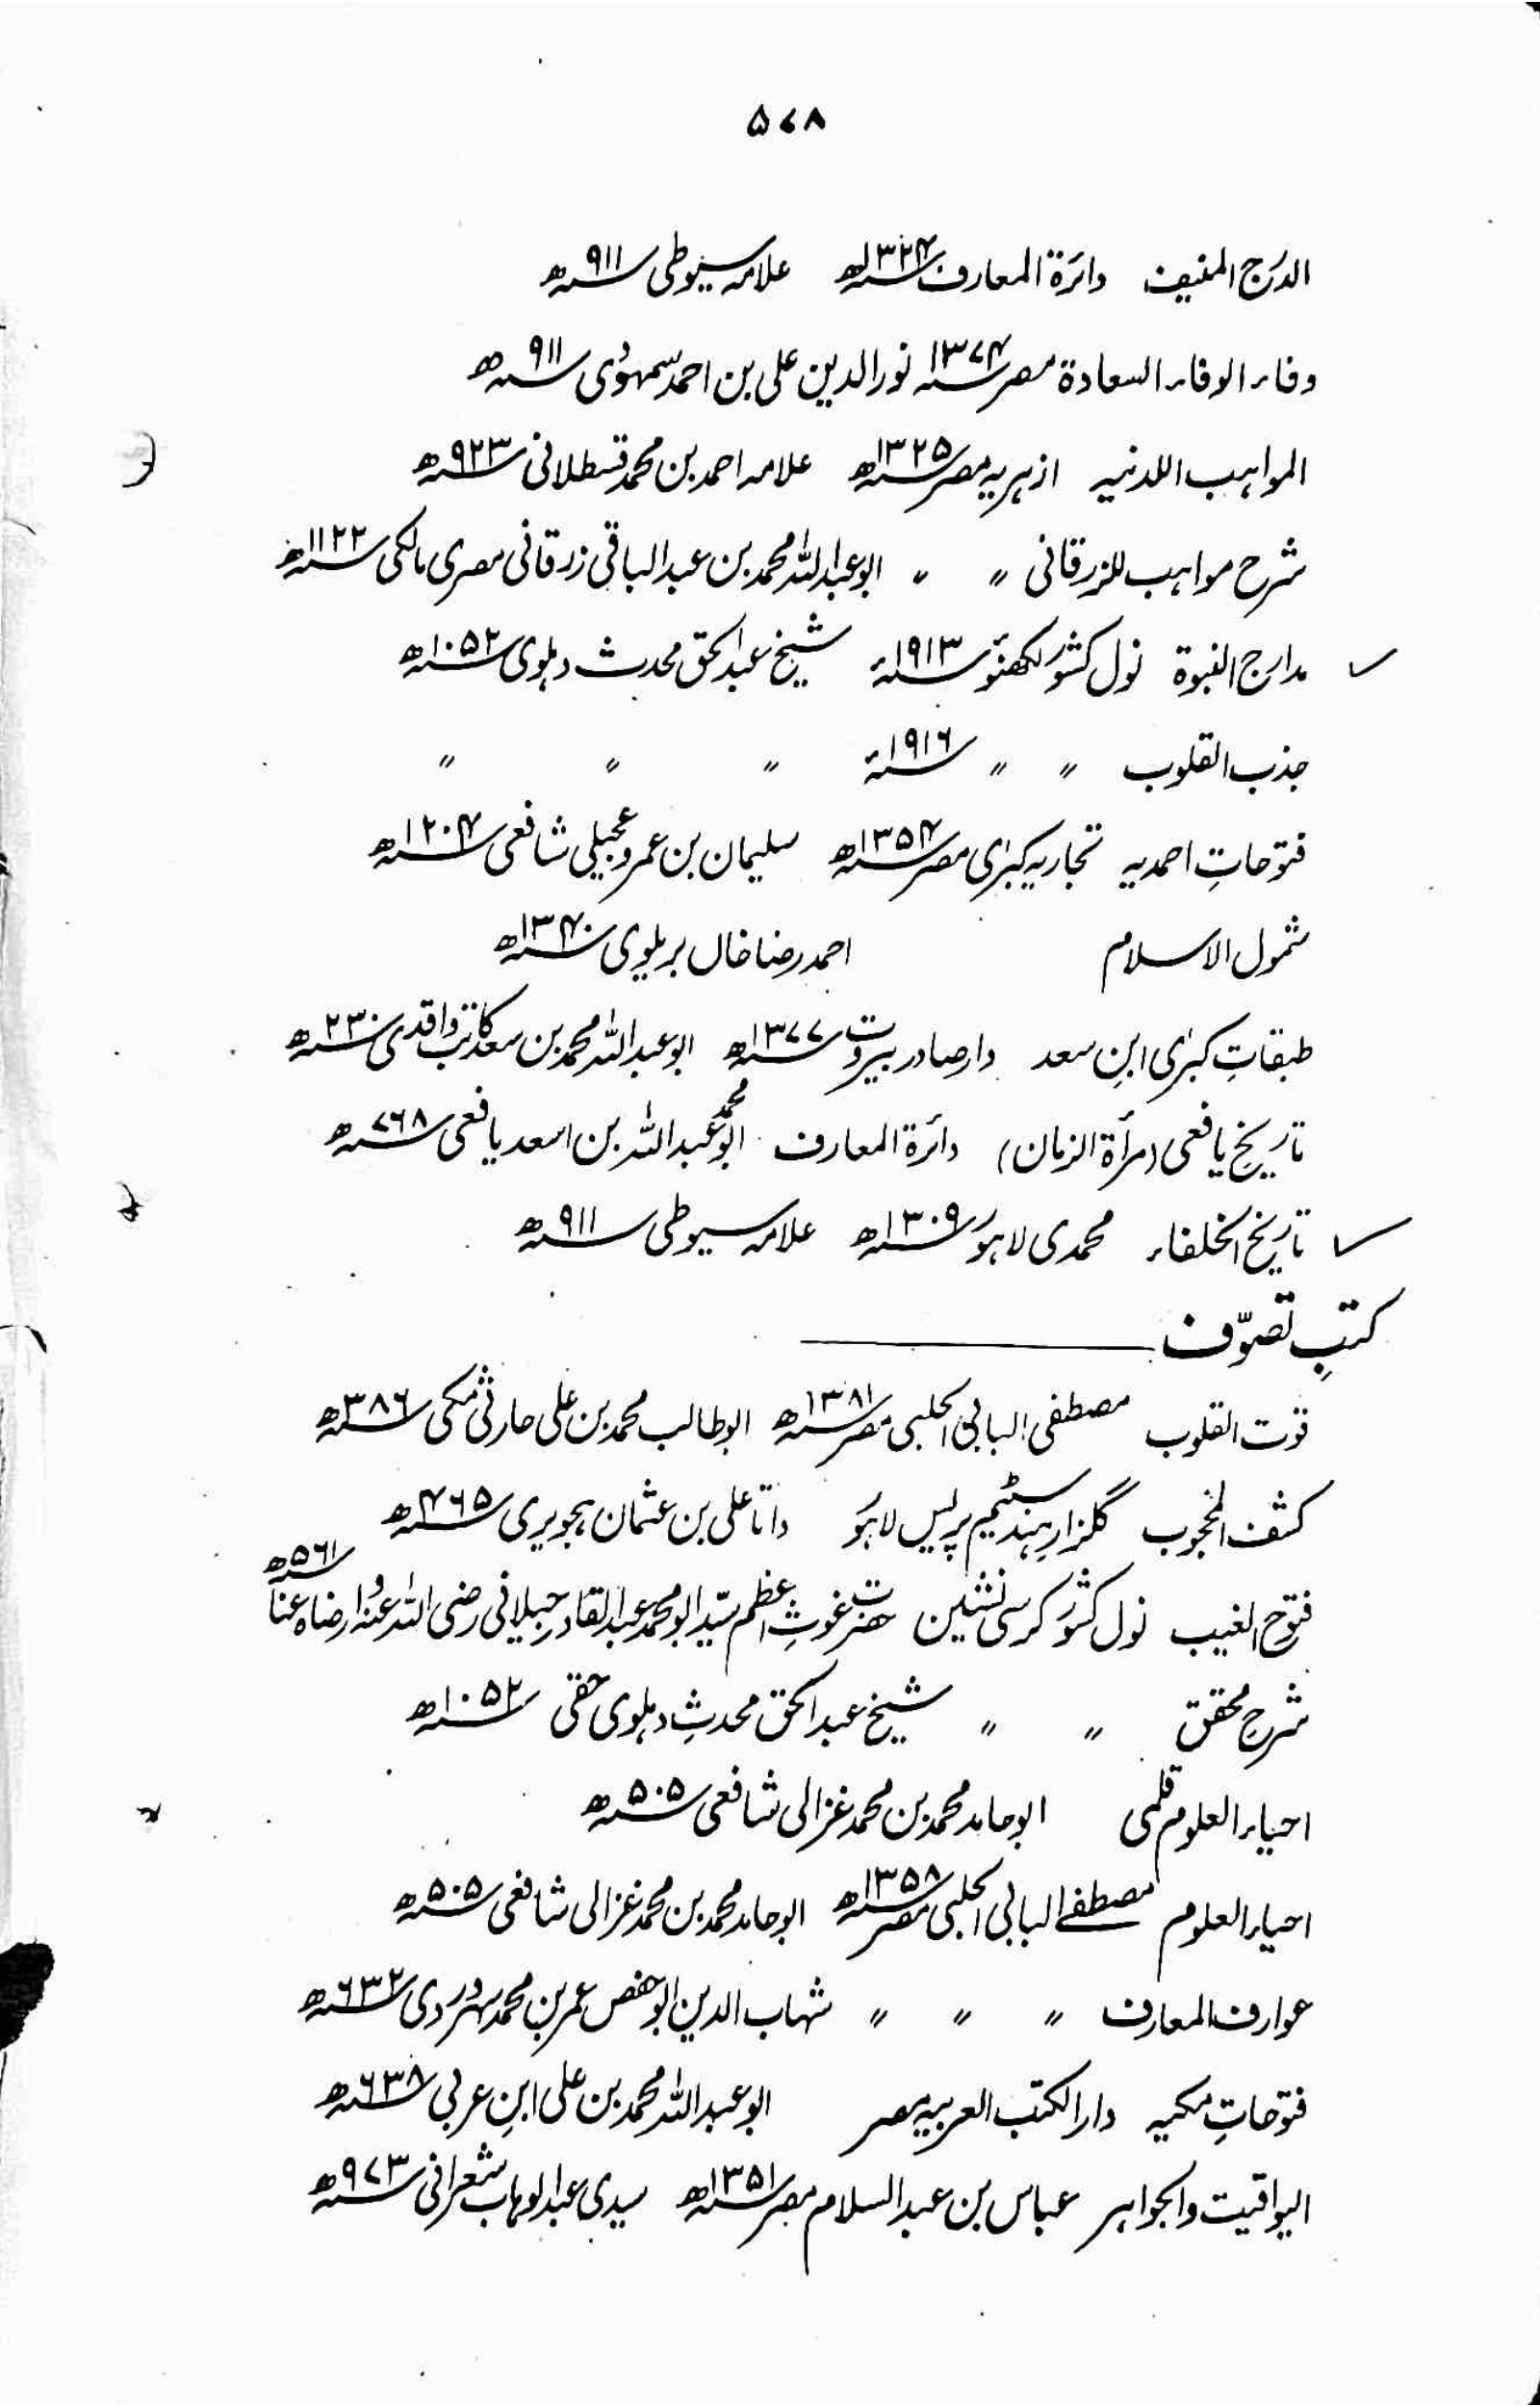 ۵۷۸
الدَرَج المنیف دائرۃ المعارف ۱۳۲۴ھ علامہ سیوطی ۹۱۱ھ
وفاء الوفاء السعادۃ مصر ۱۳۷۴ نور الدین علی بن احمد سمہودی ۹۱۱ھ
المواہب اللدنیہ ازہریہ مصر ۱۳۲۵ھ علامہ احمد بن محمد قسطلانی ۹۲۳ھ
شرح مواہب للزرقانی 〃 〃 ابو عبد اللہ محمد بن عبد الباقی زرقانی مصری مالکی ۱۱۲۲ھ
مدارج النبوۃ نول کشور لکھنؤ ۱۹۱۳ء شیخ عبد الحق محدث دہلوی ۱۰۵۲ھ
جذب القلوب 〃 〃 ۱۹۱۶ء 〃 〃 〃
فتوحاتِ احمدیہ تجاریہ کبرٰی مصر ۱۳۵۴ھ سلیمان بن عمرو عجیلی شافعی ۱۲۰۴ھ
شمول الاسلام احمد رضا خاں بریلوی ۱۳۴۰ھ
طبقاتِ کبرٰی ابنِ سعد دار صادر بیروت ۱۳۷۷ھ ابو عبد اللہ محمد بن سعد کاتب واقدی ۲۳۰ھ
تاریخ یافعی (مرأۃ الزمان) دائرۃ المعارف ابو محمد عبد اللہ بن اسعد یافعی ۷۶۸ھ
تاریخ الخلفاء محمدی لاہور ۱۳۰۹ھ علامہ سیوطی ۹۱۱ھ
کتبِ تصوّف
قوت القلوب مصطفی البابی الحلبی مصر ۱۳۸۱ھ ابوطالب محمد بن علی حارثی مکی ۳۸۶ھ
کشف المحجوب گلزارِ ہند سٹیم پریس لاہور داتا علی بن عثمان ہجویری ۴۶۵ھ
فتوح الغیب نول کشور کرسی نشین حضرت غوثِ اعظم سیّد ابو محمد عبد القادر جیلانی رضی اللہ عنہ و ارضاہ عنا ۵۶۱ھ
شرح محقق 〃 〃 شیخ عبد الحق محدثِ دہلوی حقی ۱۰۵۲ھ
احیاء العلوم قلمی ابو حامد محمد بن محمد غزالی شافعی ۵۰۵ھ
احیاء العلوم مصطفے البابی الحلبی مصر ۱۳۵۸ھ ابو حامد محمد بن محمد غزالی شافعی ۵۰۵ھ
عوارف المعارف 〃 〃 〃 شہاب الدین ابو حفص عمر بن محمد سہروردی ۶۳۲ھ
فتوحاتِ مکیہ دار الکتب العربیہ مصر ابو عبد اللہ محمد بن علی ابنِ عربی ۶۳۸ھ
الیواقیت والجواہر عباس بن عبد السلام مصر ۱۳۵۱ھ سیدی عبد الوہاب شعرانی ۹۷۳ھ